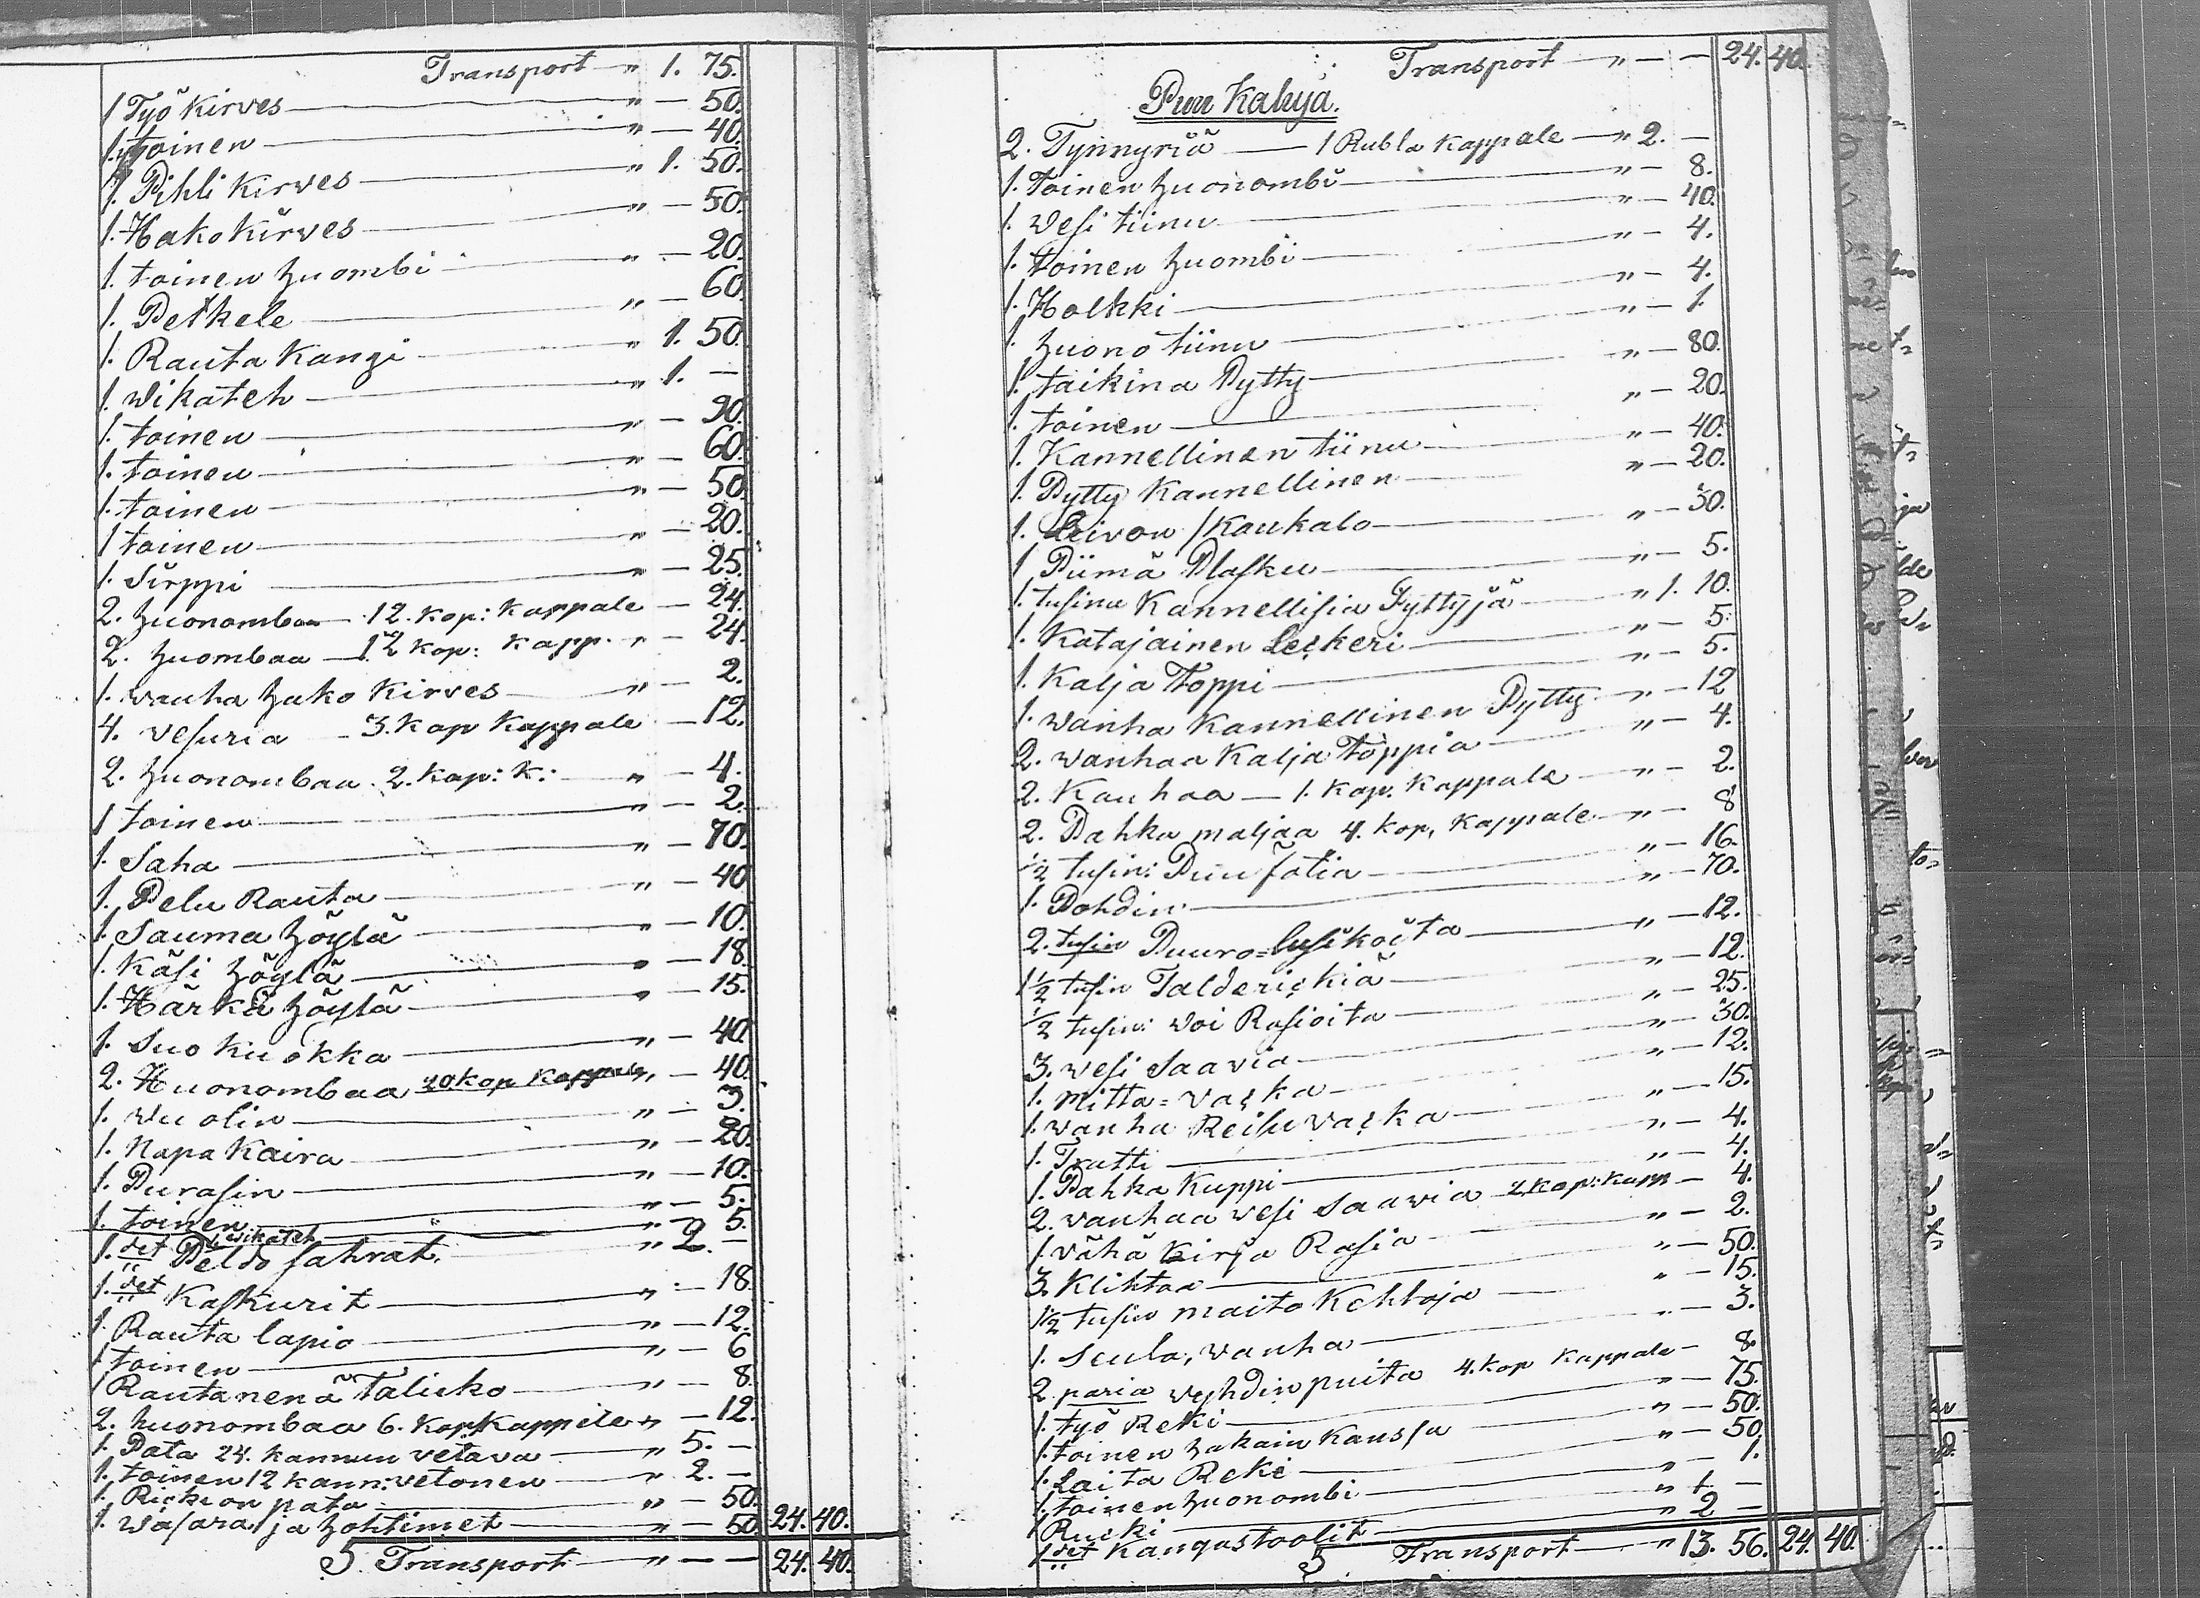 Transport — „ 1. 75.
1 Työ Kirves — „ — 50.
1. toinen — „ — 40.
1. Pihli Kirves — „ 1. 50.
1. Hako Kirves — „ — 50.
1. toinen huombi — „ — 20.
1. Petkele — „ — 60.
1. Rauta Kangi — „ 1. 50.
1. Wikateh — „ 1. —
1. toinen — „ — 90.
1. toinen — „ — 60.
1. toinen — „ — 50.
1 toinen — „ — 20.
1. Sirppi — „ — 25.
2. huonombaa — 12. Kop: Kappale — 24.
2. huombaa — 12 Kop: Kapp. „ — 24.
1. wanha hako Kirves — „ — 2.
4. Vesuria — 3. Kop Kappale — 12.
2. huonombaa. 2. Kop: K: — „ — 4.
1 toinen — „ — 2.
1. Saha — „ — 70.
1. Pelu Rauta — „ — 40
1. Sauma höylä — „ — 10.
1. Käsi höylä — „ — 18.
1. Härkä höylä — „ — 15.
1. Suo Kuokka — „ — 40.
2. Huonombaa 20 Kop Kappale „ — 40.
1. Wuolin — „ — 3.
1. Napa Kaira — „ — 20.
1. Purasin — „ — 10.
1. toinen — „ — 5.
wikateh — „ — 5.
1. det Peldo sahrat. „ 2. —
1. det Kaskurit — „ — 18.
1. Rauta lapio — „ — 12.
1 toinen — „ — 6
1 Rautanenä Talicko — „ — 8.
2. huonombaa 6. Kop Kappale „ — 12.
1. Pata 24. kannun vetävä — „ 5. —
1. toinen 12 kann: vetonen — „ 2. —
1. Rickeon pata — „ — 50.
1. Wasara ja hohtimet — „ — 50 24. 40.
5 Transport — „ — — 24. 40.
Transport — „ — — 24. 40.
Puu Kaluja.
2. Tynnyriä — 1 Rubla Kappale — „ 2. —
1. toinen huonombi — „ — 8.
1. Wesi tiinu — „ — 40.
1. toinen huombi — „ — 4.
1. Holkki — „ — 4.
1. huono tiinu — „ — 1.
1. taikina Pytty — „ — 80.
1. toinen — „ — 20.
1. Kannellinen tiinu — „ — 40.
1. Pytty Kannellinen — „ — 20.
1. Leivon Kaukalo — „ — 30.
1 Piimä Plasku — „ — 5.
1. tusina Kannellisia Pyttyjä — „ 1. 10.
1. Katajainen Leckeri — „ — 5.
1. Kalja Toppi — „ — 5.
1. wanha Kannellinen Pytty — „ — 12
2. wanhaa Kalja Toppia — „ — 4.
2. Kauhaa — 1. Kop. Kappale — „ — 2.
2. Pahka maljaa 4. Kop, Kappale — „ — 8
1/2 tusin: Puu fatia — „ — 16.
1. Pohdin — „ — 70.
2. tusin Puuro=lusikoita — „ — 12.
1 1/2 tusin Talderickiä — „ — 12.
1/2 tusin: Woi Rasioita — „ — 25.
3. wesi Saavia — „ — 30.
1. Mitta=Vacka — „ — 12.
1. wanha Reisu Vacka — „ — 15.
1. Tratti — „ — 4.
1. Pahka Kuppi — „ — 4.
2. vanhaa wesi Saawia 2 Kop: Kapp — 4.
1. Vähä Kirja Rasia — „ — 2.
3. Klihtaa — „ — 50.
1 1/2 tusin maito Kehloja — „ — 15.
1. Seula, wanha — „ — 3.
2. paria wyhdinpuita 4. Kop Kappale — 8.
1. työ Reki — „ — 75.
1. toinen hakain Kanssa — „ — 50.
1. Laita Reki — „ — 50
1. toinen huonombi — „ — 1.
1 Rucki — „ 1 —
1 det Kangastoolit — „ 2 —
5 Transport — „ 13. 56. 24. 40.